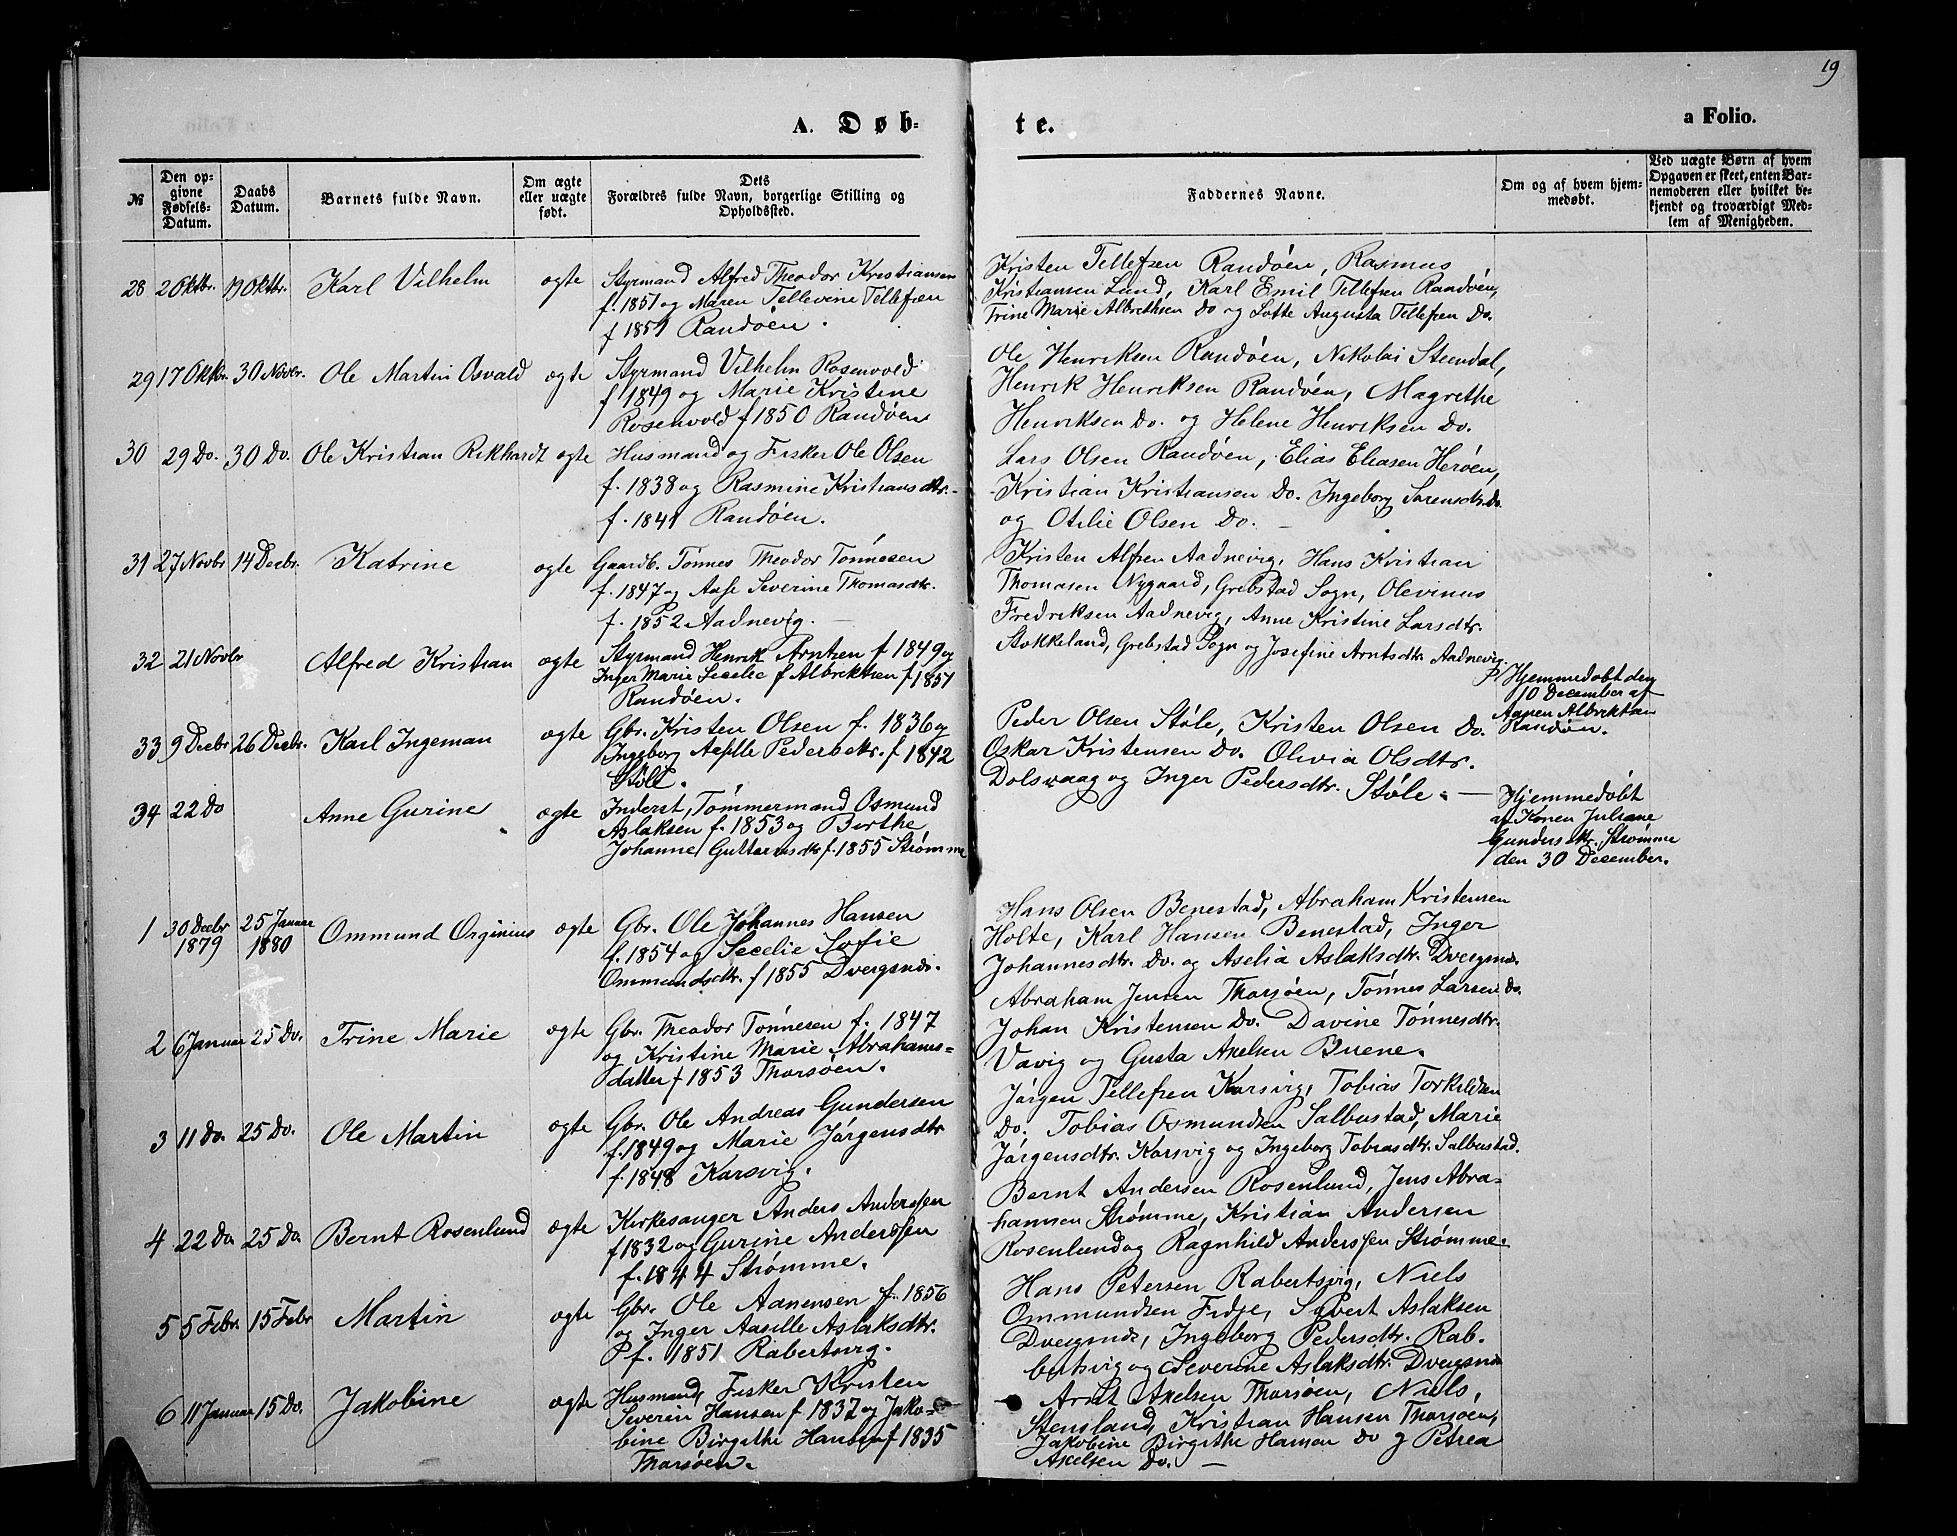 19
A. Døb-
te.
a Folio.
№
Den op-
givne
Fødsels-
Datum.
Daabs
Datum.
Barnets fulde Navn.
Om ægte
eller uægte
født.
Dets
Forældres fulde Navn, borgerlige Stilling og
Opholdssted.
Faddernes Navne.
Om og af hvem hjem-
medøbt.
Ved uægte Børn af hvem
Opgaven er skeet, enten Bar-
nemoderen eller hvilket be-
kjendt og troværdigt Med-
lem af Menigheden.
28 2 Oktbr. 19 Oktbr. Karl Vilhelm ægte
Styrmand Alfred Theodor Kristiansen
f. 1851 og Maren Tellevine Tellefsen
f 1851 Randøen.
Kristen Tellefsen Randøen, Rasmus
Kristiansen Lund, Karl Emil Tellefsen Randøen,
Trine Marie Albrethsen Do og Lotte Augusta Tellefsen Do.
29 17 Oktbr. 30 Novbr. Ole Martin Osvald ægte
Styrmand Vilhelm Rosenvold
f 1849 og Marie Kristine
Rosenvold f 1850 Randøen
Ole Henriksen Randøen, Nikolai Steendal,
Henrik Henriksen Randøen, Magrethe
Henriksen Do. og Helene Henriksen Do.
30 29 Do. 30 Do. Ole Kristian Rikhardt ægte
Husmand og Fisker Ole Olsen
f. 1838 og Rasmine Kristiansdtr.
f. 1841 Randøen.
Lars Olsen Randøen, Elias Eliasen Herøen,
Kristian Kristiansen Do. Ingeborg Sørensdtr. Do
og Otilie Olsen Do. —
31 27 Novbr 14 Decbr. Katrine ægte
Gaardb. Tønnes Theodor Tønnesen
f. 1847 og Aase Severine Thomasdtr.
f. 1852 Aadnevig. —
Kristen Alfsen Aadnevig, Hans Kristian
Thomasen Nygaard, Grebstad Sogn, Olevinus
Fredriksen Aadnevig, Anne Kristine Larsdtr.
Stokkeland, Grebstad Sogn og Josefine Arntsdtr. Aadnevig.
32 21 Novbr Alfred Kristian ægte
Styrmand Henrik Arntsen f 1849 og
Inger Marie Secelie f Albriktsen f 1851
Randøen.
Hjemmedøbt den
10 December af
Aanen Albriktsen
Randøen.
33 9 Decbr 26 Decbr. Karl Ingeman ægte
Gbr. Kristen Olsen f. 1836 og
Ingeborg Aasille Pedersdtr. f 1842
Støle.
Peder Olsen Støle, Kristen Olsen Do.
Oskar Kristensen Do. Olivia Olsdtr.
Dolsvaag og Inger Pedersdtr. Støle. —
34 22 Do Anne Gurine ægte
Inderst, Tømmermand Osmund
Aslaksen f. 1853 og Berthe
Johanne Guttormsdtr f. 1855 Strømme
Hjemmedøbt
af Konen Juliane
Gundersdtr. Strømme
den 30 December.
1 30 Decbr 25 Januar
1879 1880 Ommund Orginius ægte
Gbr. Ole Johannes Hansen
f. 1854 og Secelie Sofie
Ommundsdtr. f 1855 Dvergsnæs.
Hans Olsen Benestad, Abraham Kristensen
Holte, Karl Hansen Benestad, Inger
Johannesdtr. Do. og Aselia Aslaksdtr. Dvergsnæs.
2 6 Januar 25 Do. Trine Marie ægte
Gbr. Theodor Tønnesen f. 1847
og Kristine Marie Abrahams-
datter f 1853 Tharsøen.
Abraham Jensen Tharsøen, Tønnes Larsen Do.
Johan Kristensen Do. Davine Tønnesdtr.
Vavig og Gusta Axelsen Buene.
3 11 Do. 25 Do. Ole Martin ægte
Gbr. Ole Andreas Gundersen
f. 1849 og Marie Jørgensdtr
f. 1848 Korsvig.
Jørgen Tellefsen Korsvig, Tobias Torkildsen
Do. Tobias Osmundsen Salbustad, Marie
Jørgensdtr. Korsvig og Ingeborg Tobiasdtr. Salbustad.
4 22 Do 25 Do Bernt Rosenlund ægte
Kirkesanger Anders Anderssen
f 1832 og Gurine Anderssen
f. 1844 Strømme.
Bernt Andersen Rosenlund, Jens Abra-
hamsen Strømme, Kristian Andersen
Rosenlund og Ragnhild Anderssen Strømme.
5 5 Febr. 15 Febr Martin ægte
Gbr. Ole Aanensen f. 1856
og Inger Aasille Aslaksdtr.
f. 1851 Rabertsvig.
Hans Petersen Rabertsvig, Niels
Ommundsen Fidje, Sivert Aslaksen
Dvergsnæs, Ingeborg Pedersdtr. Rab-
bertsvig og Severine Aslaksdtr. Dvergsnæs
6 11 Januar 15 Do. Jakobine ægte
Husmand, Fisker Kristen
Severin Hansen f 1837 og Jako-
bine Birgithe Hansen f 1835
Tharsøen.
Arnt Axelsen Tharsøen, Niels
Stensland, Kristian Hansen Tharsøen,
Jakobine Birgithe Hansen Do og Petrea
Axelsen Do. —